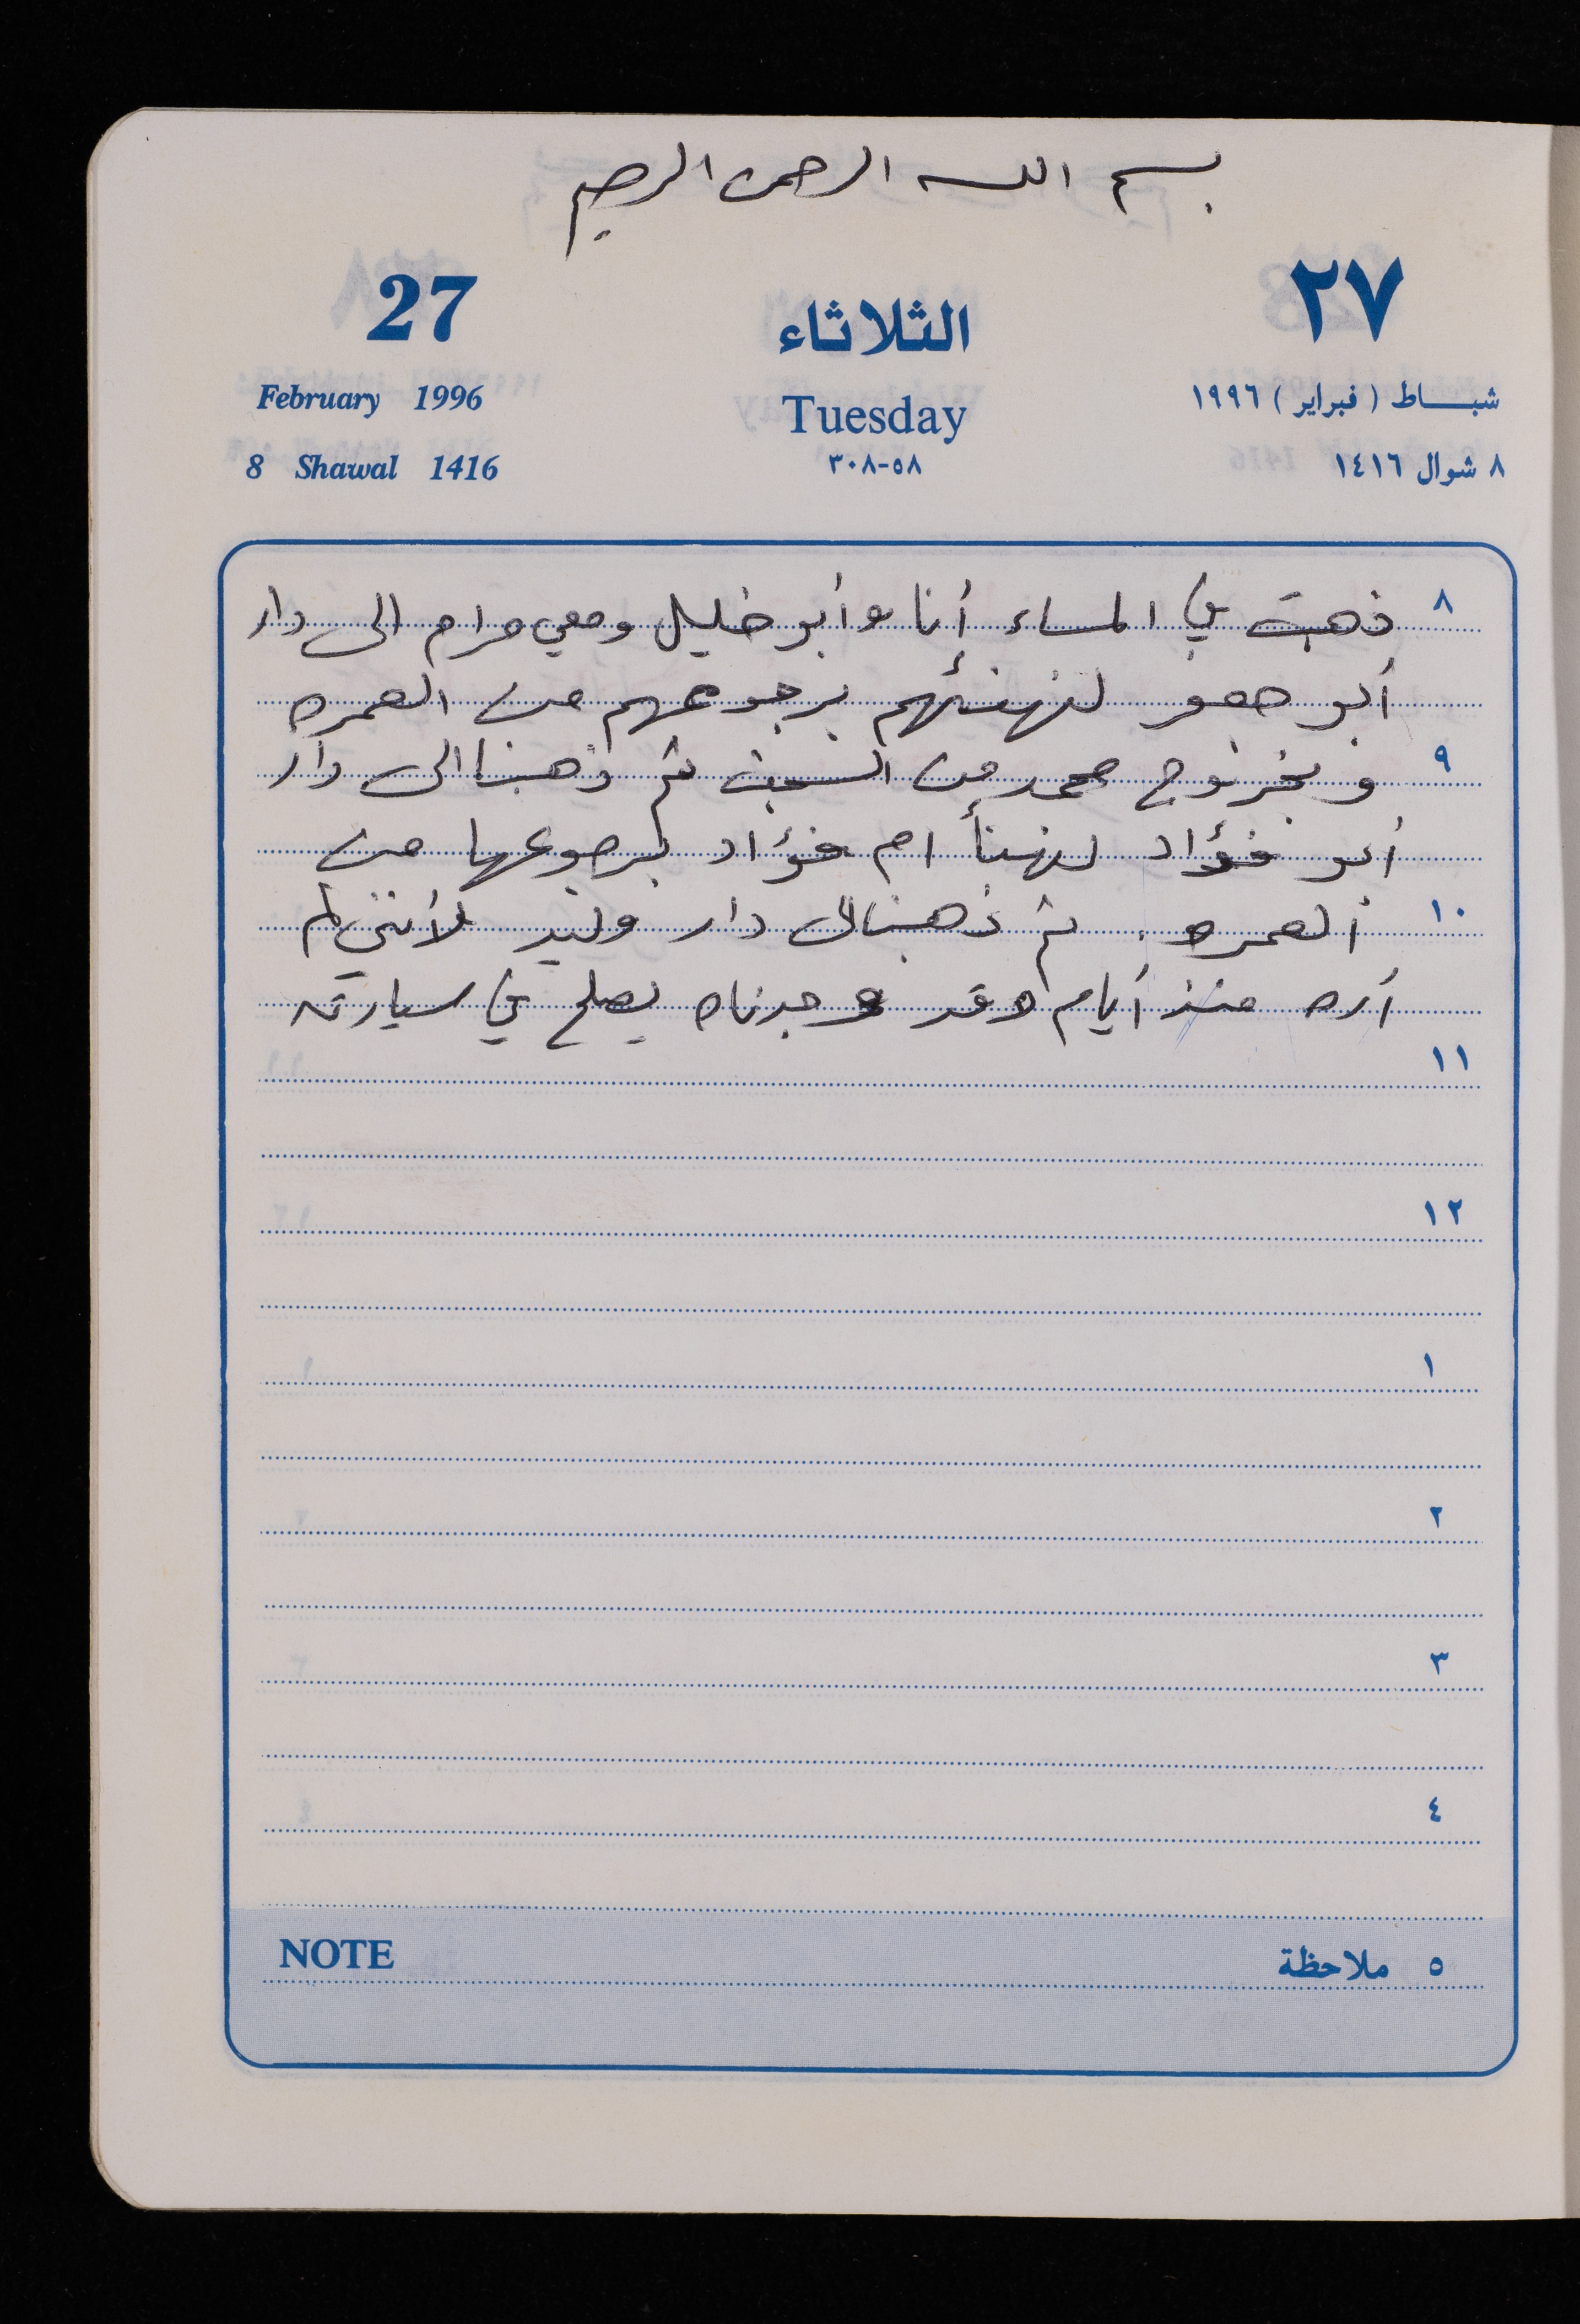 بسم الله الرحمن الرحيم
27 الثلاثاء ٢٧
February 1996 Tuesday شباط (فبراير) ١٩٩٦
8 Shawal 1416 ٥٨-٣٠٨ ٨ شوال ١٤١٦
٨ ذهبت في المساء أنا وأبو خليل ومعي مرام الى دار
أبو جعفر لنهنئهم برجوعهم من العمره
٩ وبخروج محمد من السجن ثم ذهبنا الى دار
أبو فؤاد لنهنأ ام فؤاد برجوعها من
١٠ العمره . ثم ذهبنا الى دار وليد لأنني لم
أره منذ أيام وقد وجدناه يصلح في سيارته
١١
١٢
١
٢
٣
٤
٥ ملاحظة NOTE